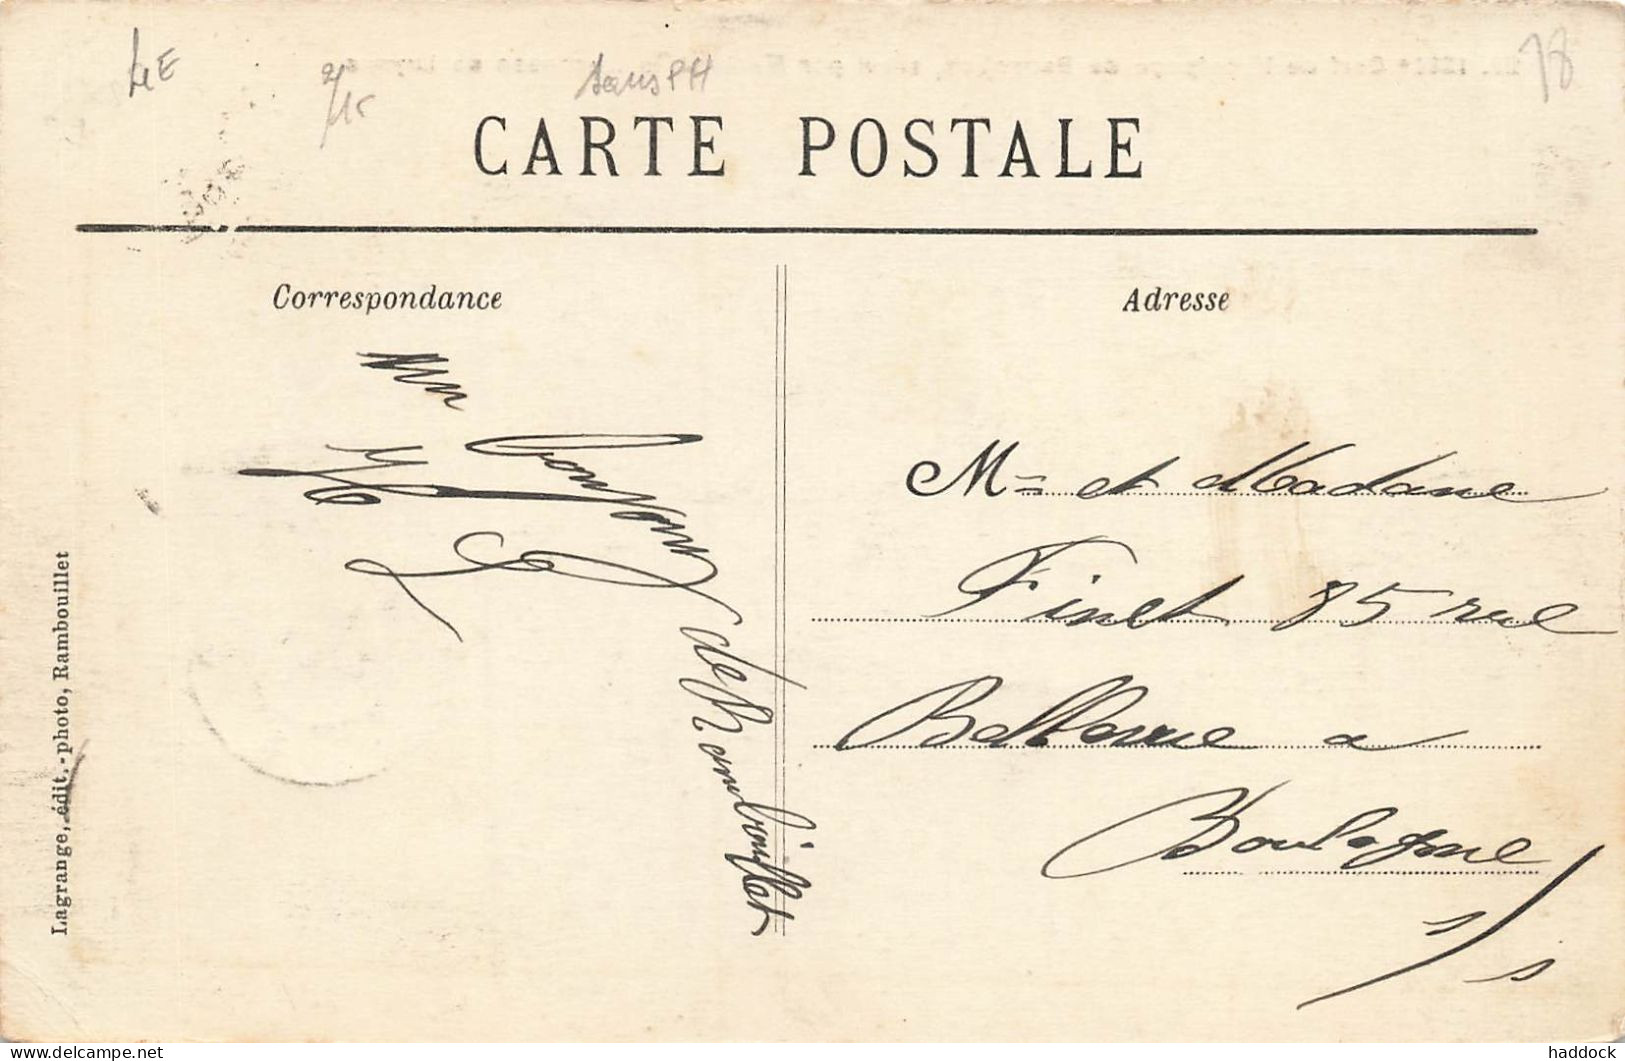 4E
2/15
sans PH
78
CARTE POSTALE
Correspondance
Adresse
un
bonjour
de Rambouillet
Mr et Madame
Finet 85 rue
Bellevue a
Boulogne
s/s
Lagrange, édit.-photo, Rambouillet
haddock